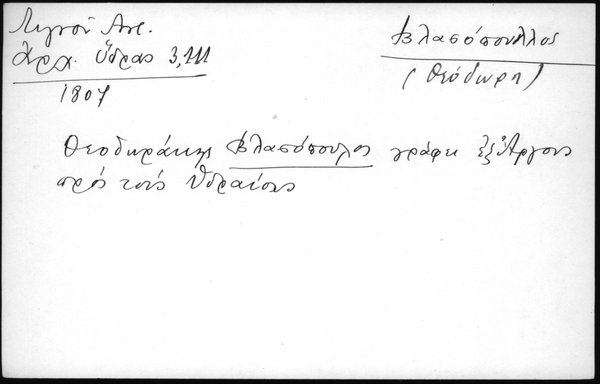 Λιγνοῦ Ἀντ.
Ἀρχ. Ὕδρας 3,111
1807
Βλασόπουλλος
(Θεόδωρη)
Θεοδωράκης Βλασόπουλος γράφει ἐξ Ἄργους
πρός τούς Ὑδραίους